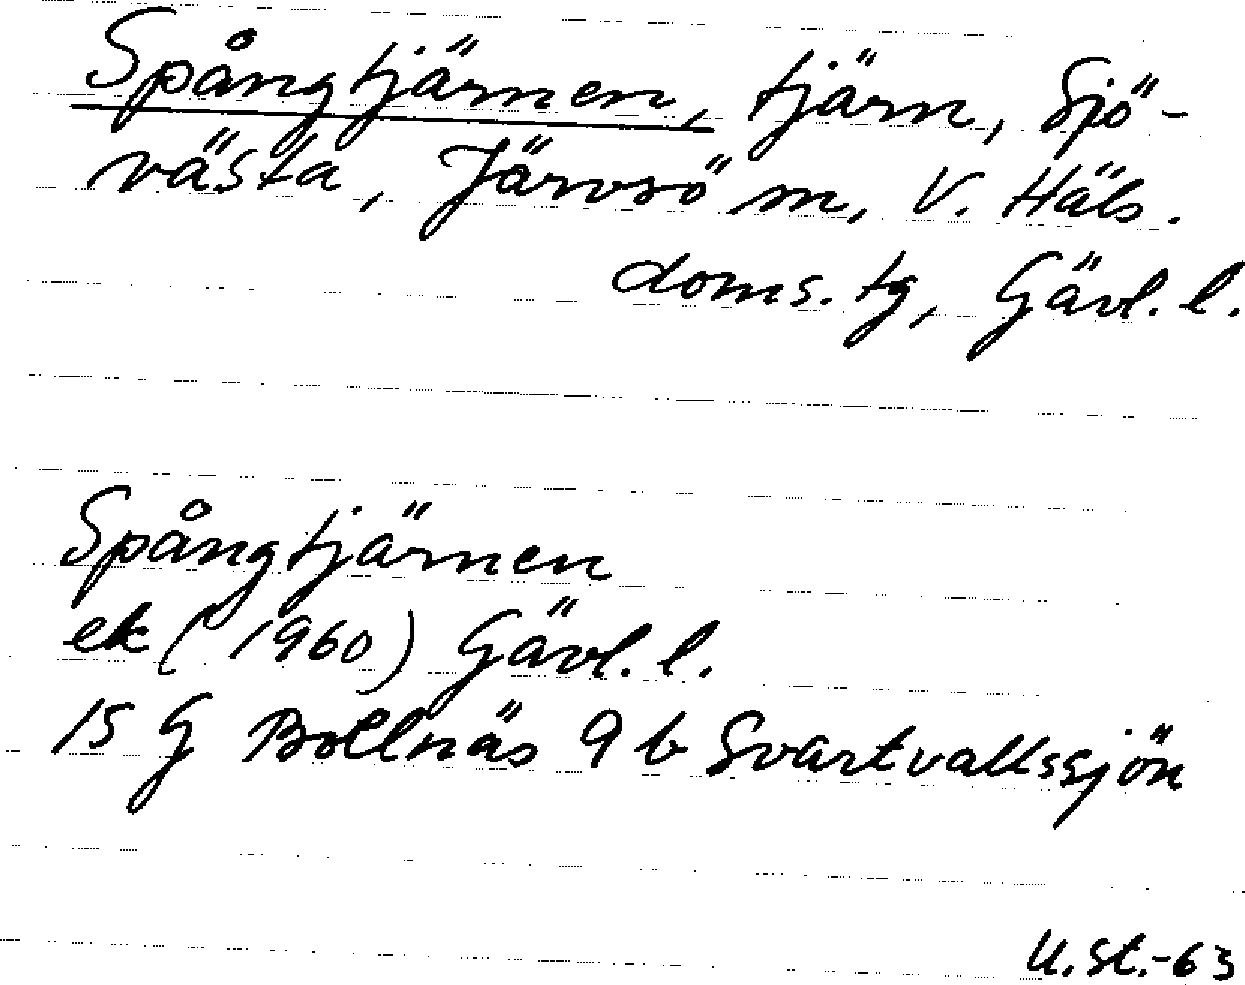 Spångtjärnen, tjärn, Sjö-
västa, Järvsö sn, V. Häls.
doms. tg, Gävl. l.
Spångtjärnen
ek (1960) Gävl. l.
15 G Bollnäs 9 b Svartvallssjön
U. St.-63